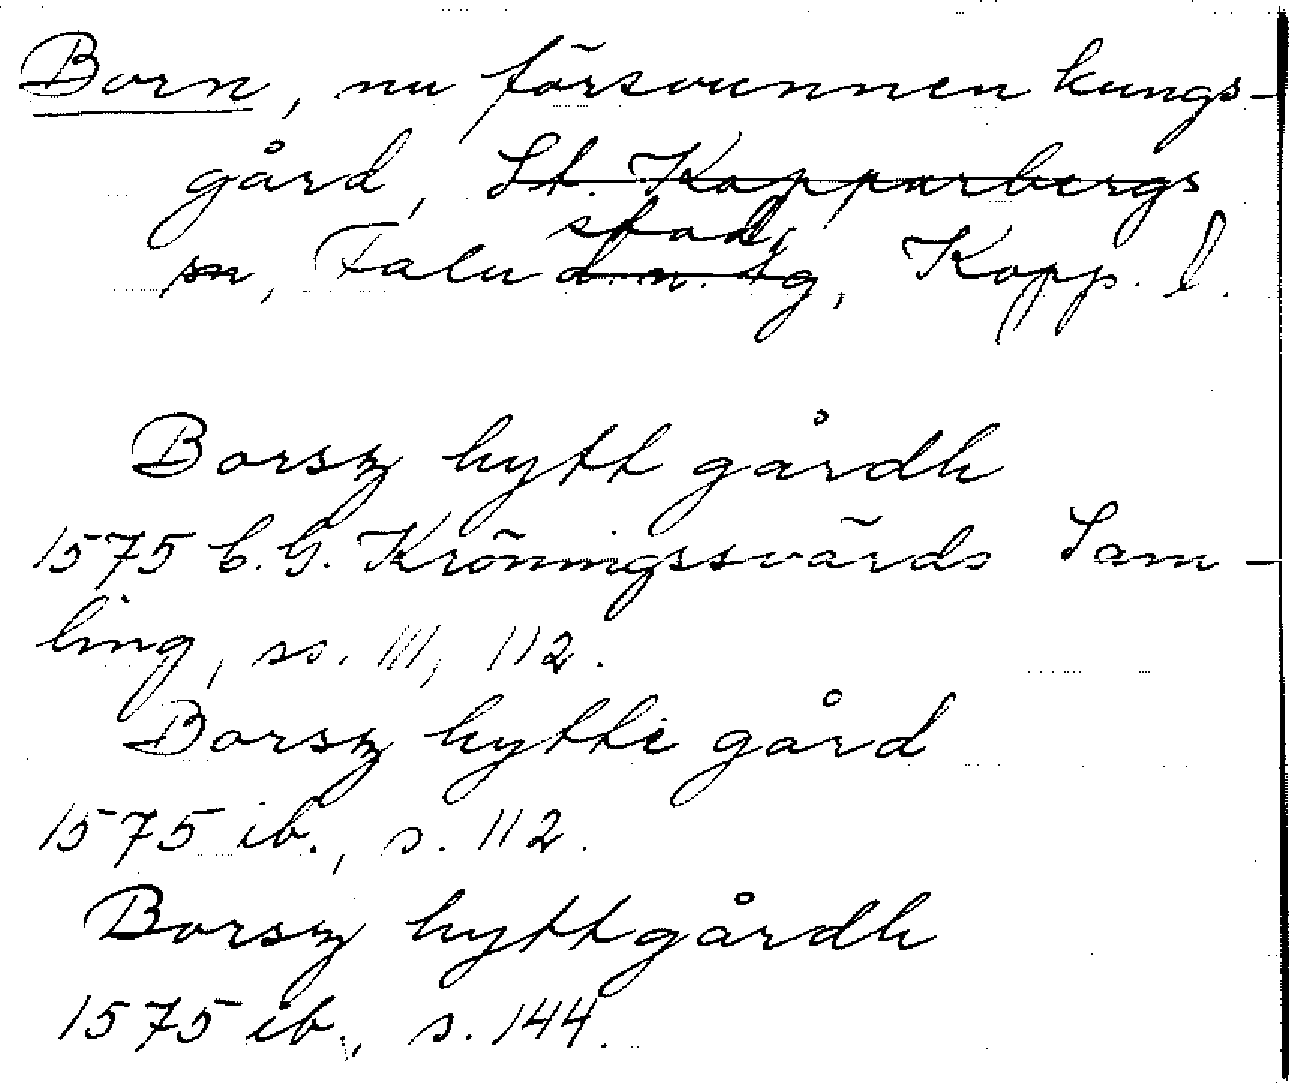 Born, nu försvunnen kungs-
gård, St. Kopparbergs
stad,
sn, Falu d.m. lg, Kopp. l.
Borsz hytt gårdh
1575 C.G. Kröningssvärds Sam-
ling, ss. 111, 112.
Borsz hytte gård
1575 ib., s. 112.
Borsz hyttgårdh
1575 ib., s. 144.